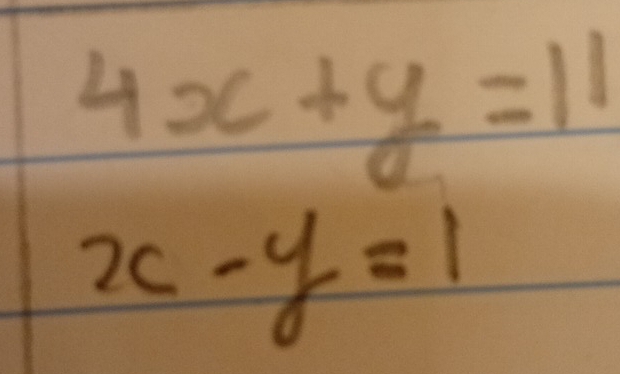 4x + y = 11
x - y = 1